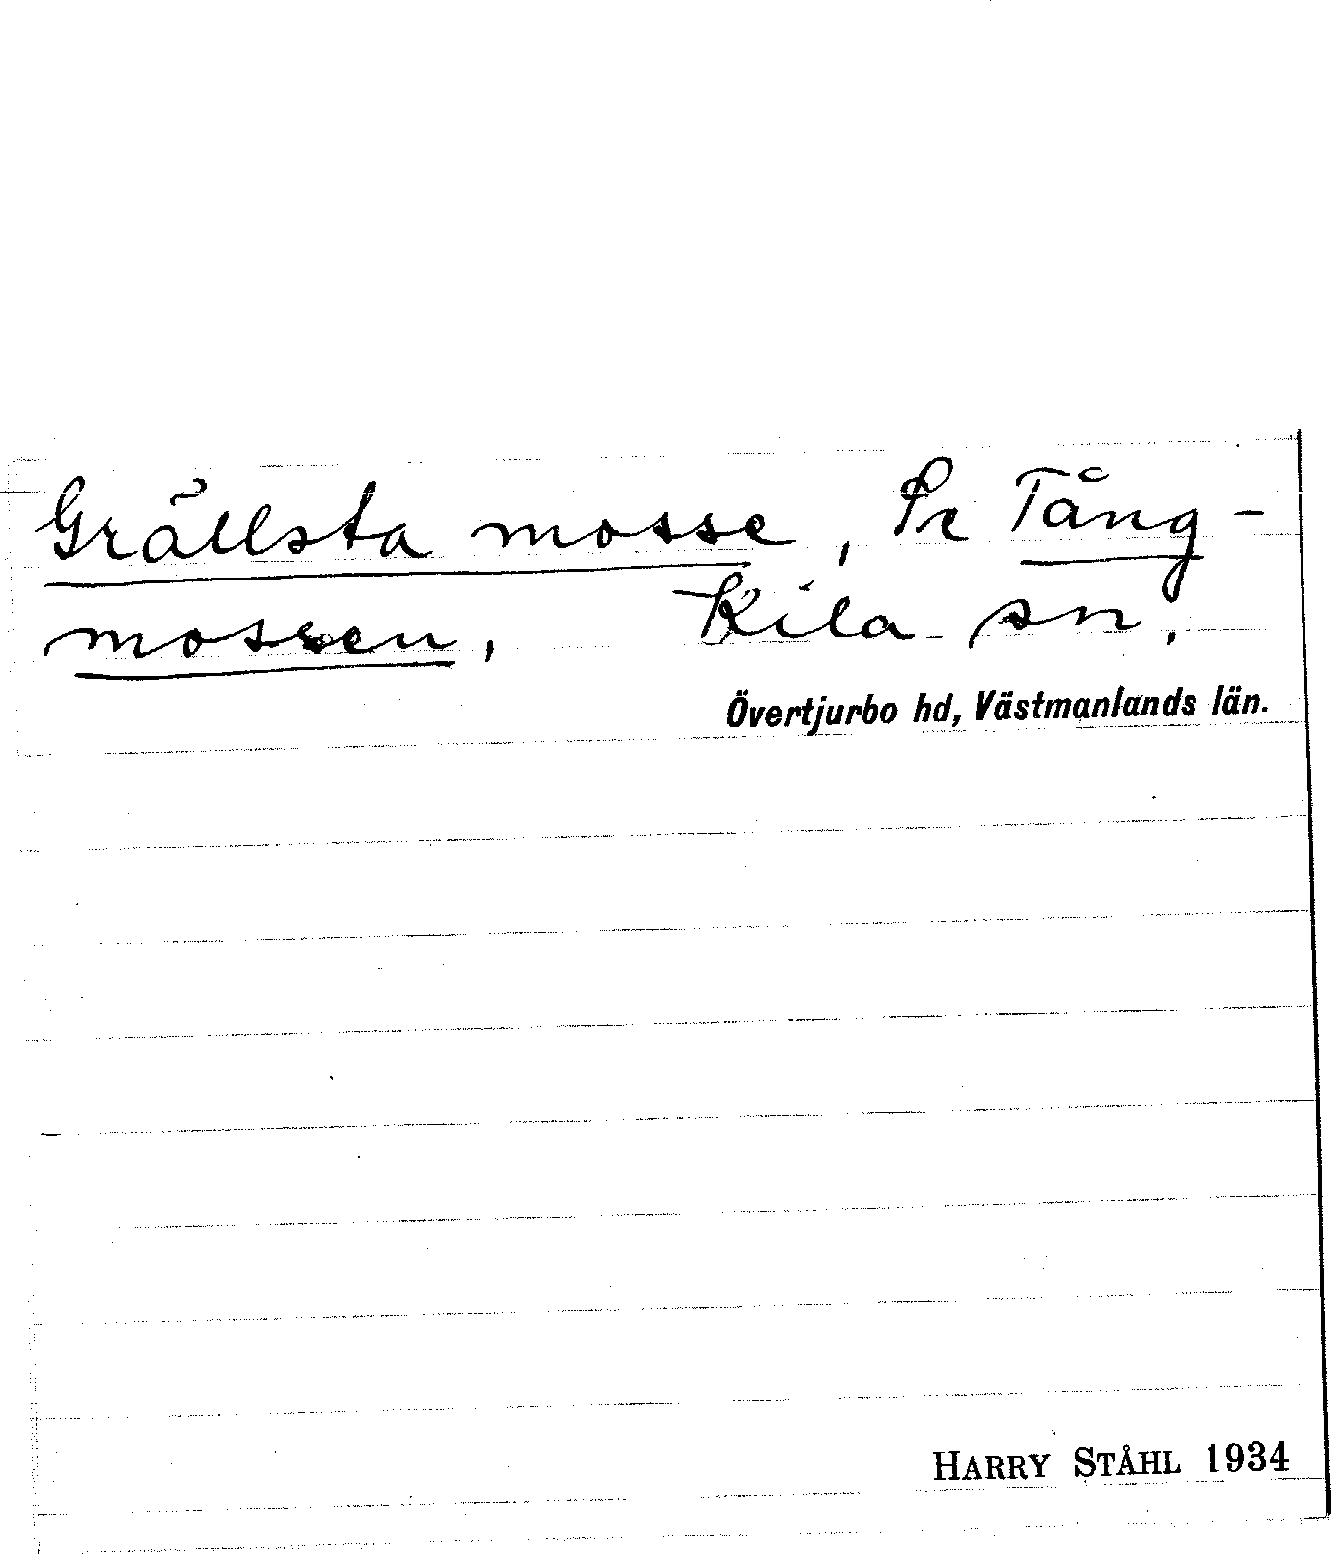 Grällsta mosse, Se Tång-
mossen, Kila sn.
Övertjurbo hd, Västmanlands län.
HARRY STÅHL 1934